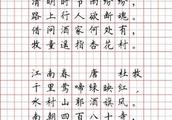 清明时节雨纷纷，
路上行人欲断魂。
借问酒家何处有，
牧童遥指杏花村。
江南春 唐 杜牧
千里莺啼绿映红，
水村山郭酒旗风。
南朝四百八十寺，